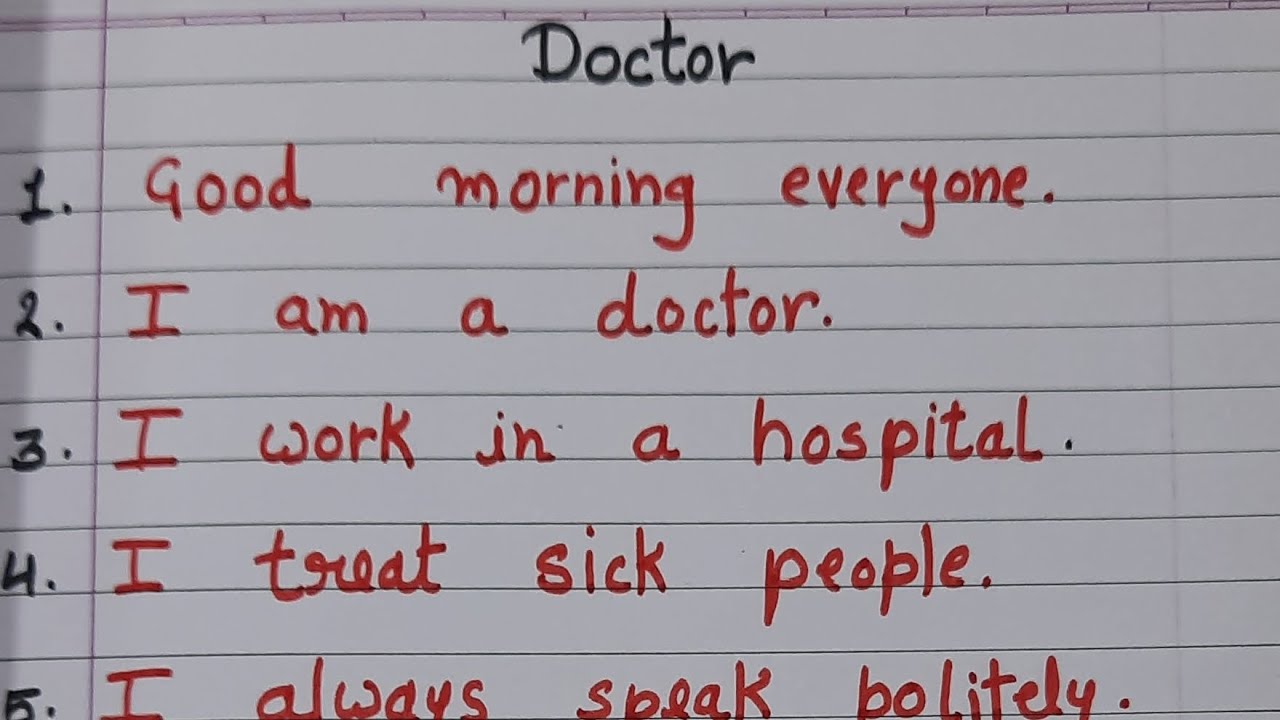 Doctor
1. Good morning everyone.
2. I am a doctor.
3. I work in a hospital.
4. I treat sick people.
5. I always speak politely.